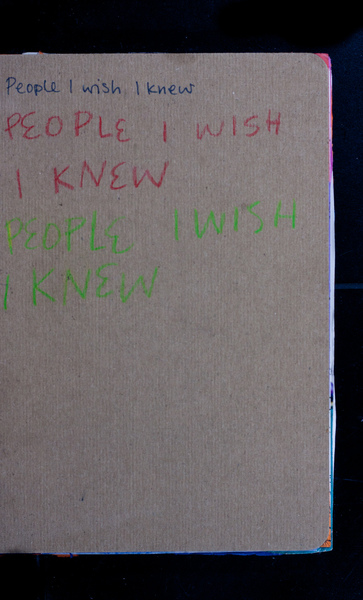 People I wish I knew
PEOPLE I WISH
I KNEW
PEOPLE I WISH
I KNEW